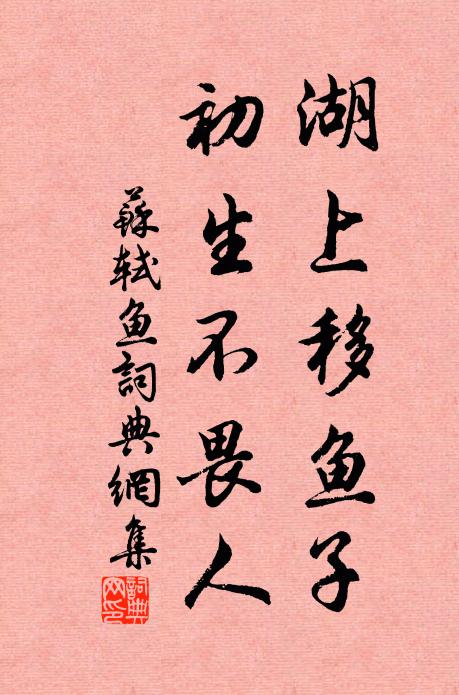 湖上移鱼子
初生不畏人
蘇轼鱼詞典網集
詞典网印